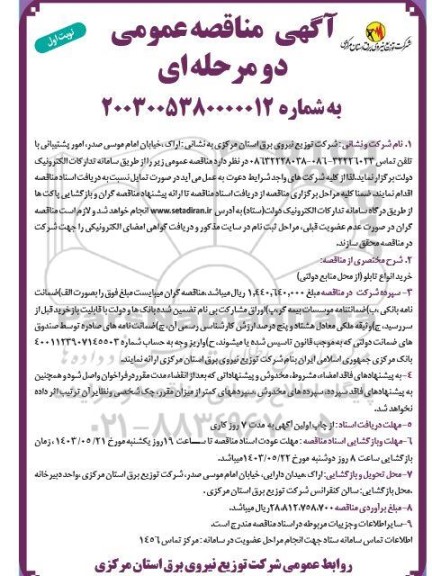 شرکت توزیع نیروی برق استان مرکزی
نوبت اول
آگهی مناقصه عمومی
دو مرحله ای
به شماره ۲۰۰۳۰۰۵۳۸۰۰۰۰۰۱۲
۱. نام شرکت و نشانی: شرکت توزیع نیروی برق استان مرکزی به نشانی: اراک، خیابان امام موسی صدر، امور پشتیبانی با
تلفن تماس ۳۲۲۲۶۰۳۳-۰۸۶-۰۸۶۳۲۲۲۸۰۳۸ در نظر دارد مناقصه عمومی زیر را از طریق سامانه تدارکات الکترونیک
دولت برگزار نماید. لذا از کلیه شرکت های واجد شرایط دعوت به عمل می آید در صورت تمایل نسبت به دریافت اسناد مناقصه
اقدام نمایند، ضمنا کلیه مراحل برگزاری مناقصه از دریافت اسناد مناقصه تا ارائه پیشنهاد مناقصه گران و بازگشایی پاکت ها
از طریق درگاه سامانه تدارکات الکترونیک دولت(ستاد) به آدرس www.setadiran.ir انجام خواهد شد و لازم است مناقصه
گران در صورت عدم عضویت قبلی، مراحل ثبت نام در سایت مذکور و دریافت گواهی امضای الکترونیکی را جهت شرکت
در مناقصه محقق سازند.
۲. شرح مختصری از مناقصه:
خرید انواع تابلو (از محل منابع دولتی)
۳- سپرده شرکت در مناقصه مبلغ ۱,۴۴۰,۶۴۰,۰۰۰ ریال میباشد. مناقصه گران میبایست مبلغ فوق را بصورت الف)ضمانت
نامه بانکی ،ب)ضمانتنامه موسسات بیمه گر،پ)اوراق مشارکت بی نام تضمین شده بانک ها و دولت با قابلیت بازخرید قبل از
سررسید، ج)وثیقه ملکی معادل هشتاد و پنج درصد ارزش کارشناسی رسمی آن، چ)ضمانت نامه های صادره توسط صندوق
های ضمانت دولتی که به موجب قانون تاسیس شده یا میشوند، ح)واریز وجه به حساب شماره ۴۰۰۱۱۲۳۹۰۷۱۴۵۵۰۳
بانک مرکزی جمهوری اسلامی ایران بنام شرکت توزیع نیروی برق استان مرکزی ارائه نمایند.
۴- به پیشنهادهای فاقد امضاء، مشروط، مخدوش و پیشنهاداتی که بعد از انقضاء مدت مقرر در فراخوان واصل شود و همچنین
به پیشنهادهای فاقد سپرده، سپرده های مخدوش، سپرده های کمتر از میزان مقرر، چک شخصی و نظایر آن ترتیب اثر داده
نخواهد شد.
۵- مهلت دریافت اسناد: از چاپ اولین آگهی به مدت ۷ روز کاری
۶- مهلت و بازگشایی اسناد مناقصه: مهلت عودت اسناد مناقصه تا ساعت ۱۹ روز یکشنبه مورخ ۱۴۰۳/۰۵/۲۱ ، زمان
بازگشایی ساعت ۸ روز دوشنبه مورخ ۱۴۰۳/۰۵/۲۲ میباشد.
۷- محل تحویل و بازگشایی: اراک، میدان دارایی، خیابان امام موسی صدر، شرکت توزیع برق استان مرکزی، واحد دبیرخانه
،محل بازگشایی: سالن کنفرانس شرکت توزیع برق استان مرکزی.
۸- مبلغ برآوردی مناقصه ۲۸,۸۱۲,۷۵۸,۷۰۰ ریال میباشد.
۹- سایر اطلاعات و جزییات مربوطه در اسناد مناقصه مندرج است.
اطلاعات تماس سامانه ستاد جهت انجام مراحل عضویت در سامانه: مرکز تماس ۱۴۵۶
روابط عمومی شرکت توزیع نیروی برق استان مرکزی